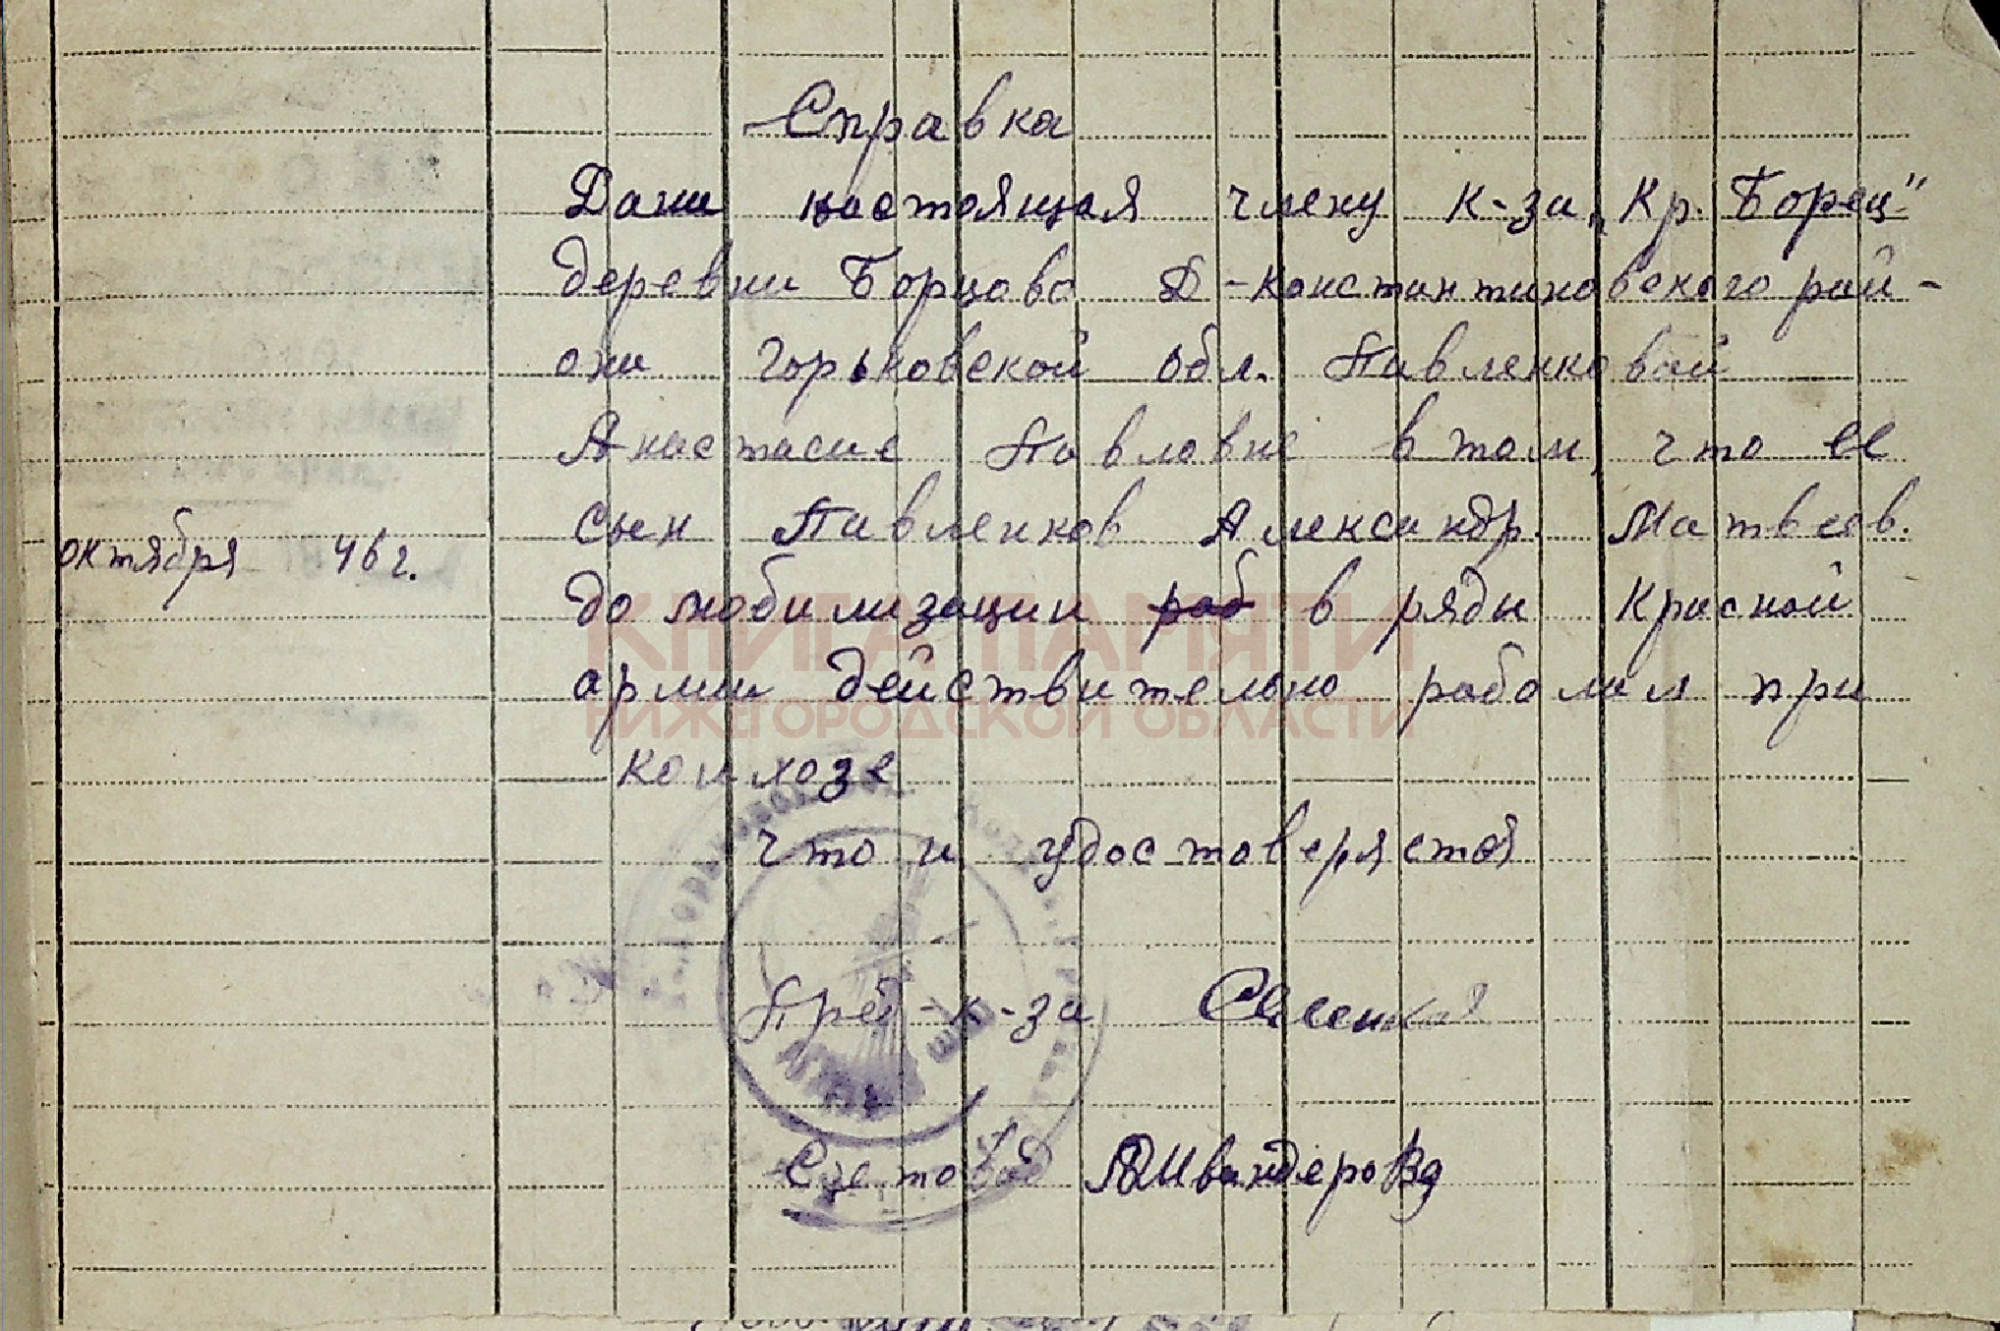 Справка
Дана настоящая члену к-за „Кр. Борец"
деревни Борцово Д-Константиновского рай-
она Горьковской обл. Павленковой
Анастасие Павловне в том, что ее
сын Павленков Александр. Матвеев.
октября 46 г.
до мобилизации раб в ряды Красной
армии действительно работал при
колхозе
что и удостоверяется
Пред-к-за
Счетовод
КНИГА ПАМЯТИ
НИЖЕГОРОДСКОЙ ОБЛАСТИ